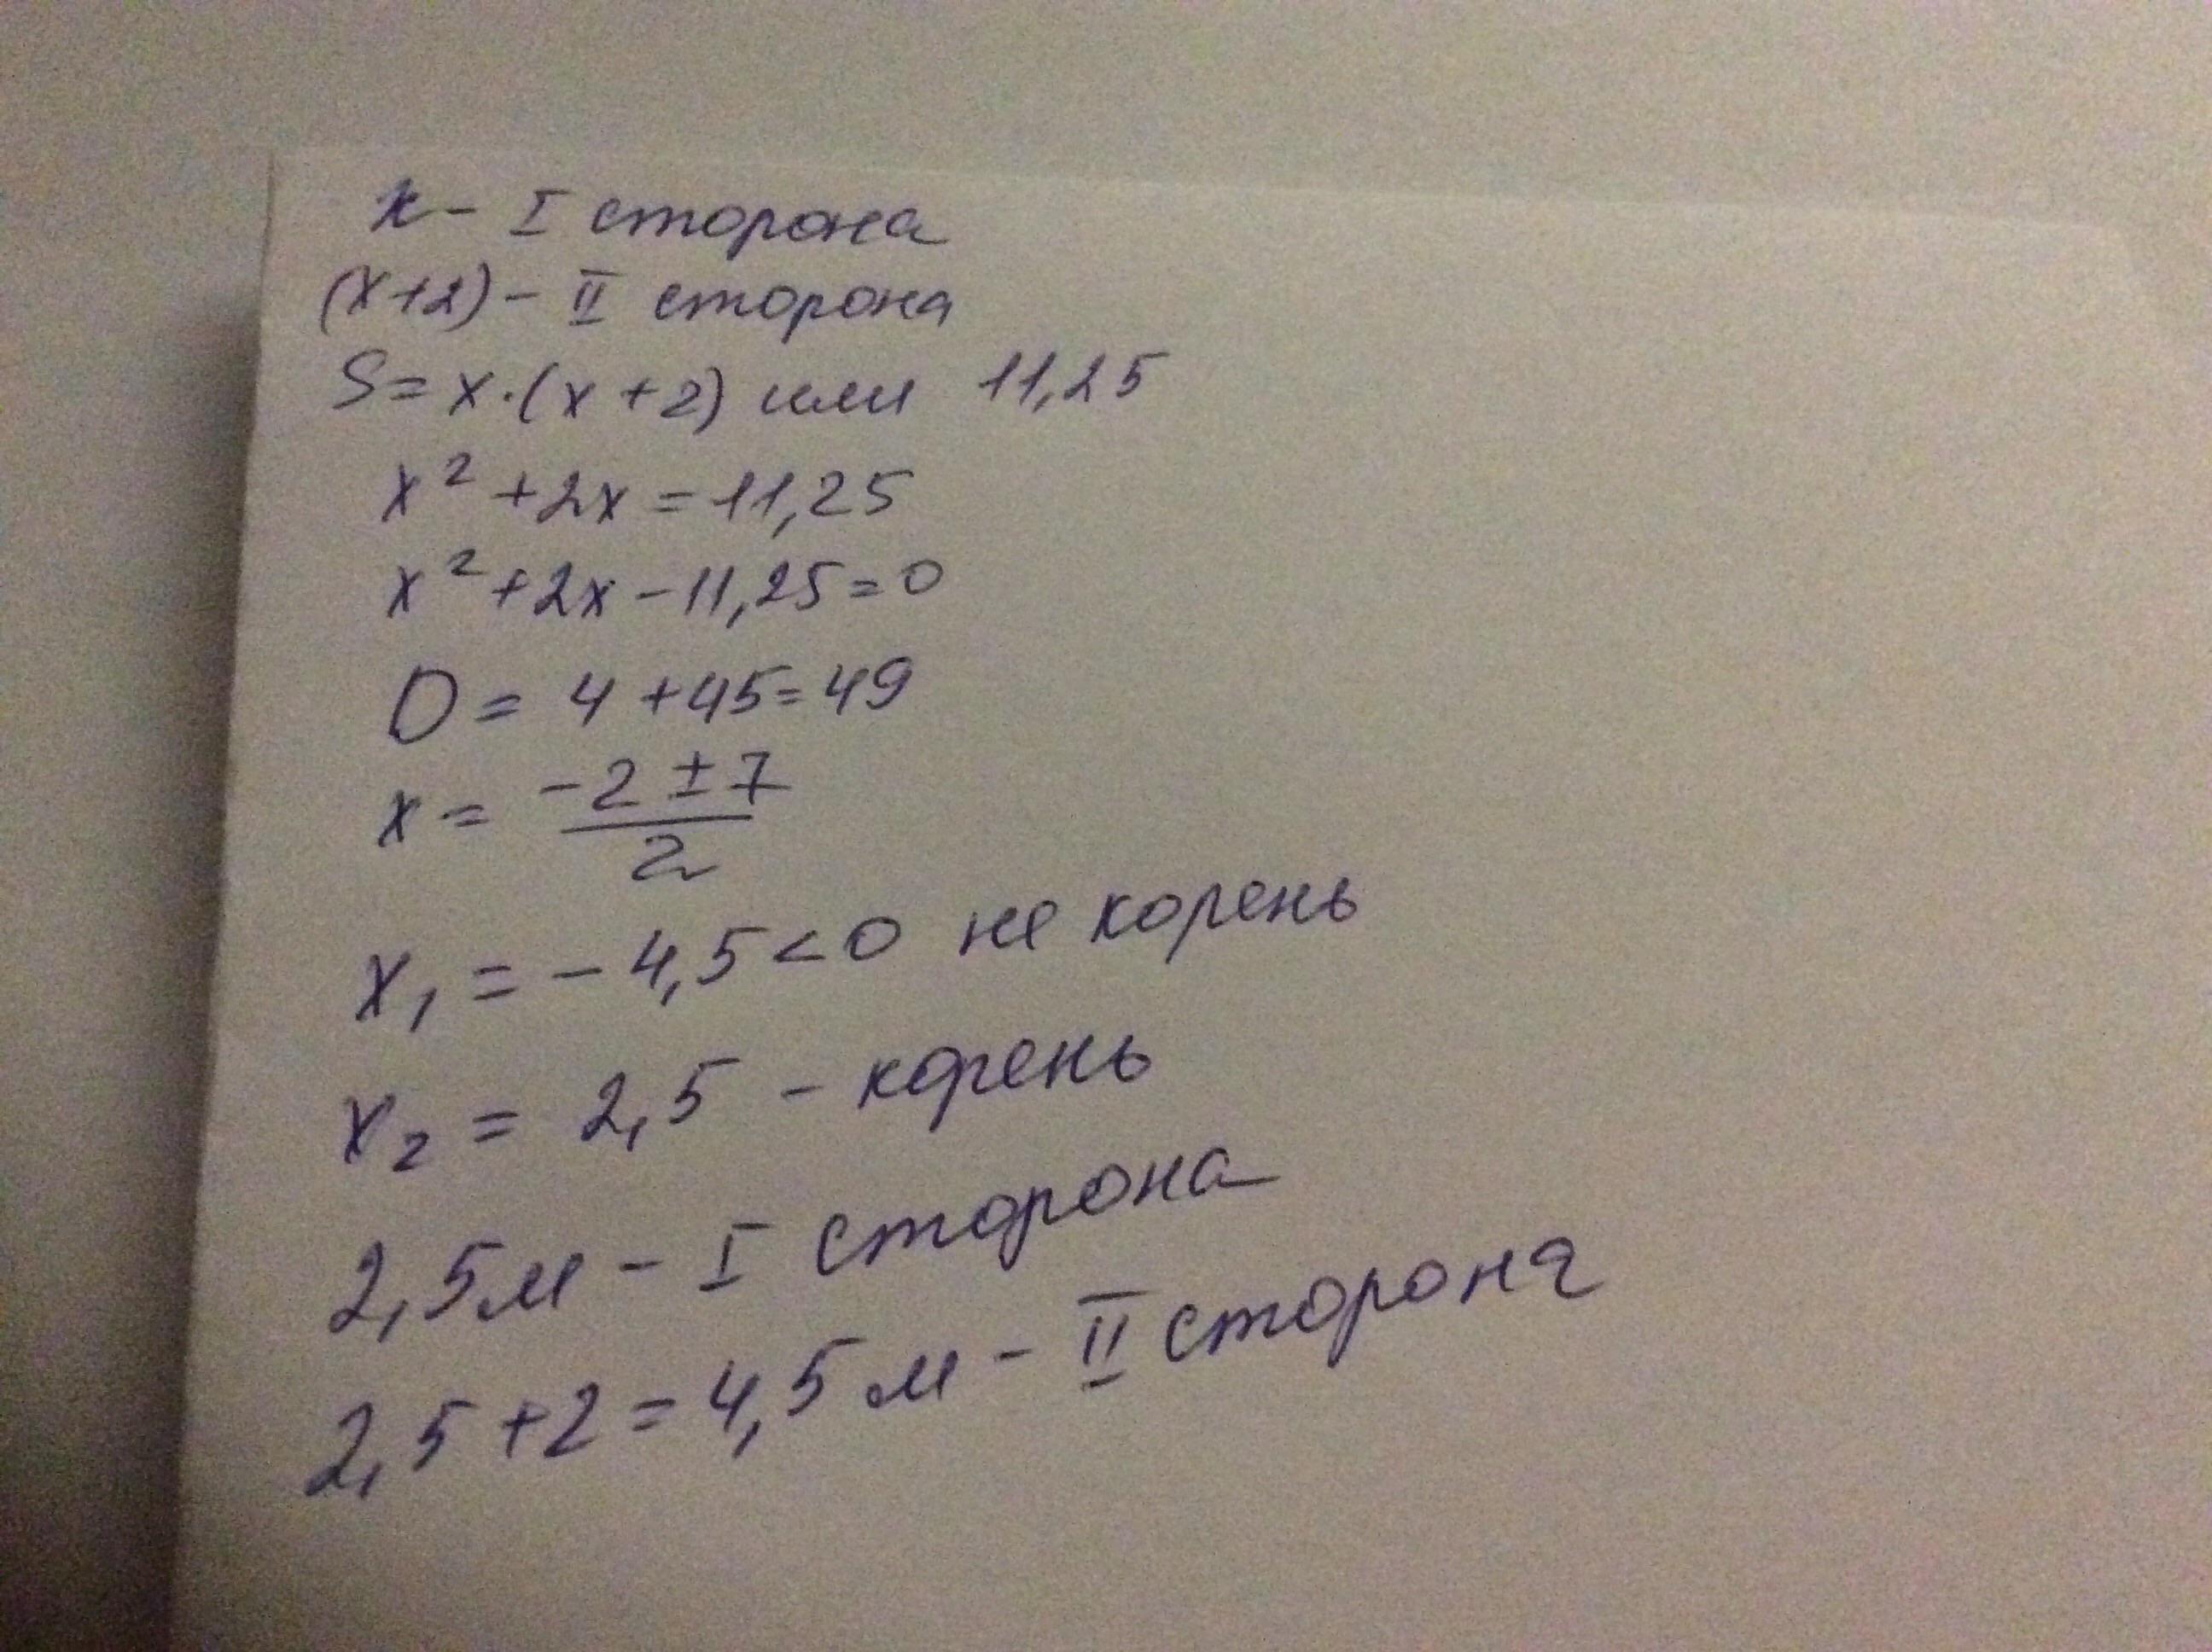 x - I сторона
(x+2) - II сторона
S = x·(x+2) или 11,25
x² + 2x = 11,25
x² + 2x - 11,25 = 0
D = 4 + 45 = 49
x = (-2 ± 7)/2
x₁ = -4,5 < 0 не корень
x₂ = 2,5 - корень
2,5м - I сторона
2,5 + 2 = 4,5 м - II сторона